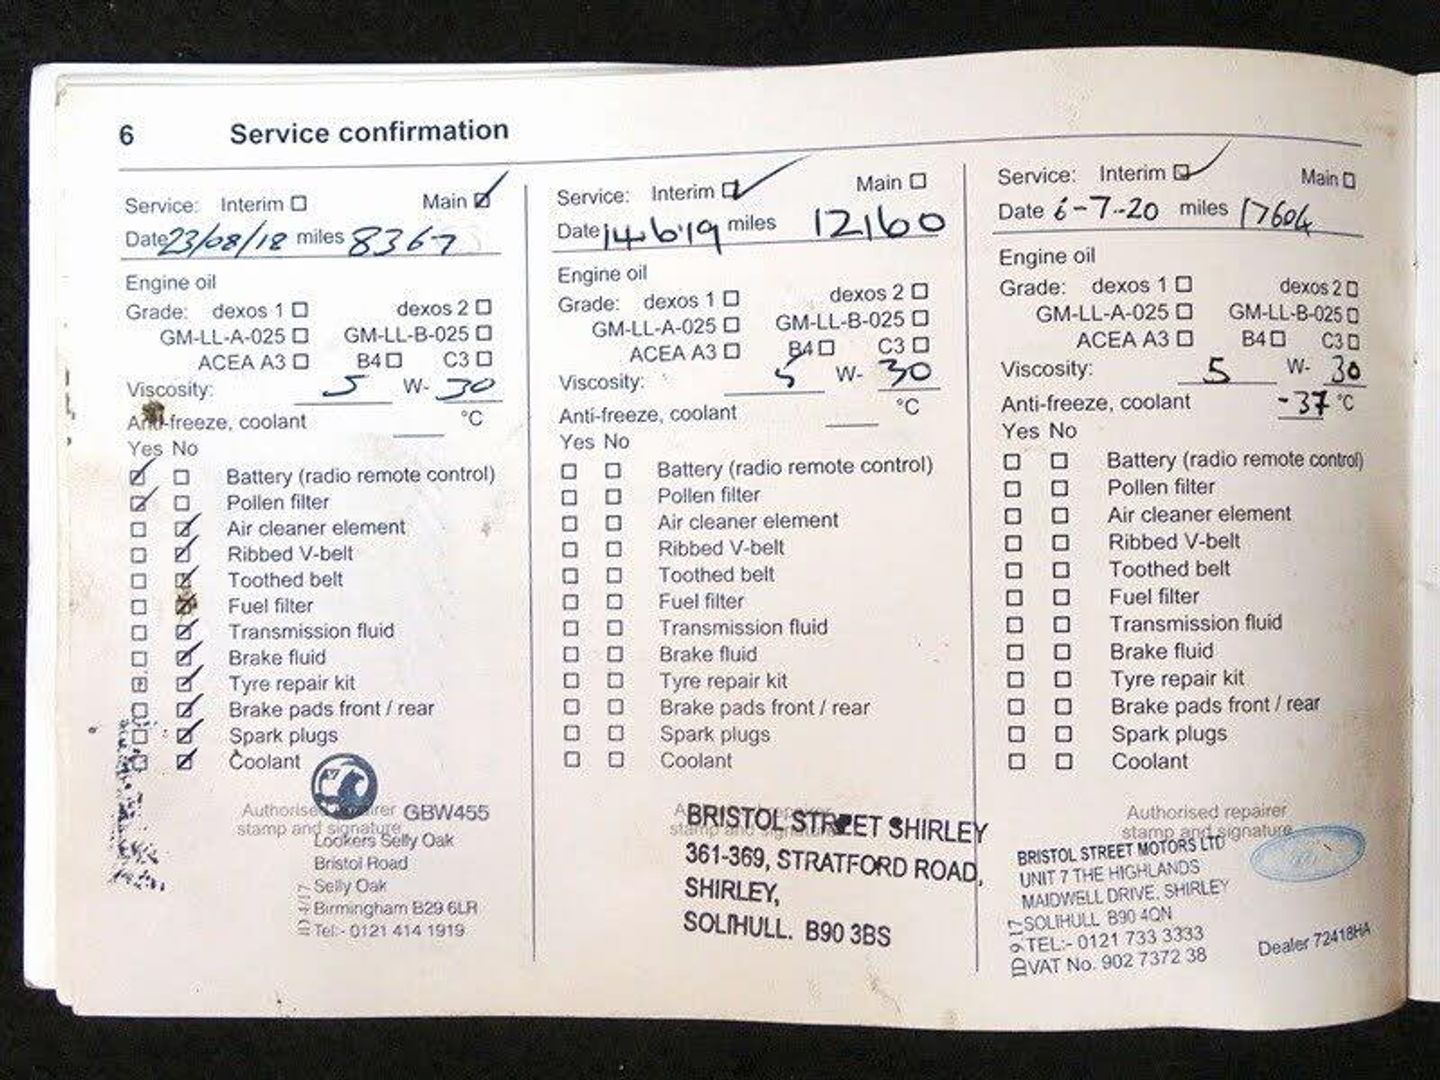 6 Service confirmation
Service: Interim Main
Date 23/08/18 miles 8367
Engine oil
Grade: dexos 1 dexos 2
GM-LL-A-025 GM-LL-B-025
ACEA A3 B4 C3
Viscosity: 5 W- 30
Anti-freeze, coolant °C
Yes No
Battery (radio remote control)
Pollen filter
Air cleaner element
Ribbed V-belt
Toothed belt
Fuel filter
Transmission fluid
Brake fluid
Tyre repair kit
Brake pads front / rear
Spark plugs
Coolant
Authorised repairer GBW455
stamp and signature
Lookers Selly Oak
Bristol Road
Selly Oak
Birmingham B29 6LR
Tel:- 0121 414 1919
Service: Interim Main
Date 14.6.19 miles 12160
Engine oil
Grade: dexos 1 dexos 2
GM-LL-A-025 GM-LL-B-025
ACEA A3 B4 C3
Viscosity: 5 W- 30
Anti-freeze, coolant °C
Yes No
Battery (radio remote control)
Pollen filter
Air cleaner element
Ribbed V-belt
Toothed belt
Fuel filter
Transmission fluid
Brake fluid
Tyre repair kit
Brake pads front / rear
Spark plugs
Coolant
Authorised repairer
stamp and signature
BRISTOL STREET SHIRLEY
361-369, STRATFORD ROAD,
SHIRLEY,
SOLIHULL. B90 3BS
Service: Interim Main
Date 6-7-20 miles 17604
Engine oil
Grade: dexos 1 dexos 2
GM-LL-A-025 GM-LL-B-025
ACEA A3 B4 C3
Viscosity: 5 W- 30
Anti-freeze, coolant -37 °C
Yes No
Battery (radio remote control)
Pollen filter
Air cleaner element
Ribbed V-belt
Toothed belt
Fuel filter
Transmission fluid
Brake fluid
Tyre repair kit
Brake pads front / rear
Spark plugs
Coolant
Authorised repairer
stamp and signature
BRISTOL STREET MOTORS LTD
UNIT 7 THE HIGHLANDS
MAIDWELL DRIVE, SHIRLEY
SOLIHULL B90 4QN
TEL:- 0121 733 3333
VAT No. 902 7372 38
Dealer 72418HA